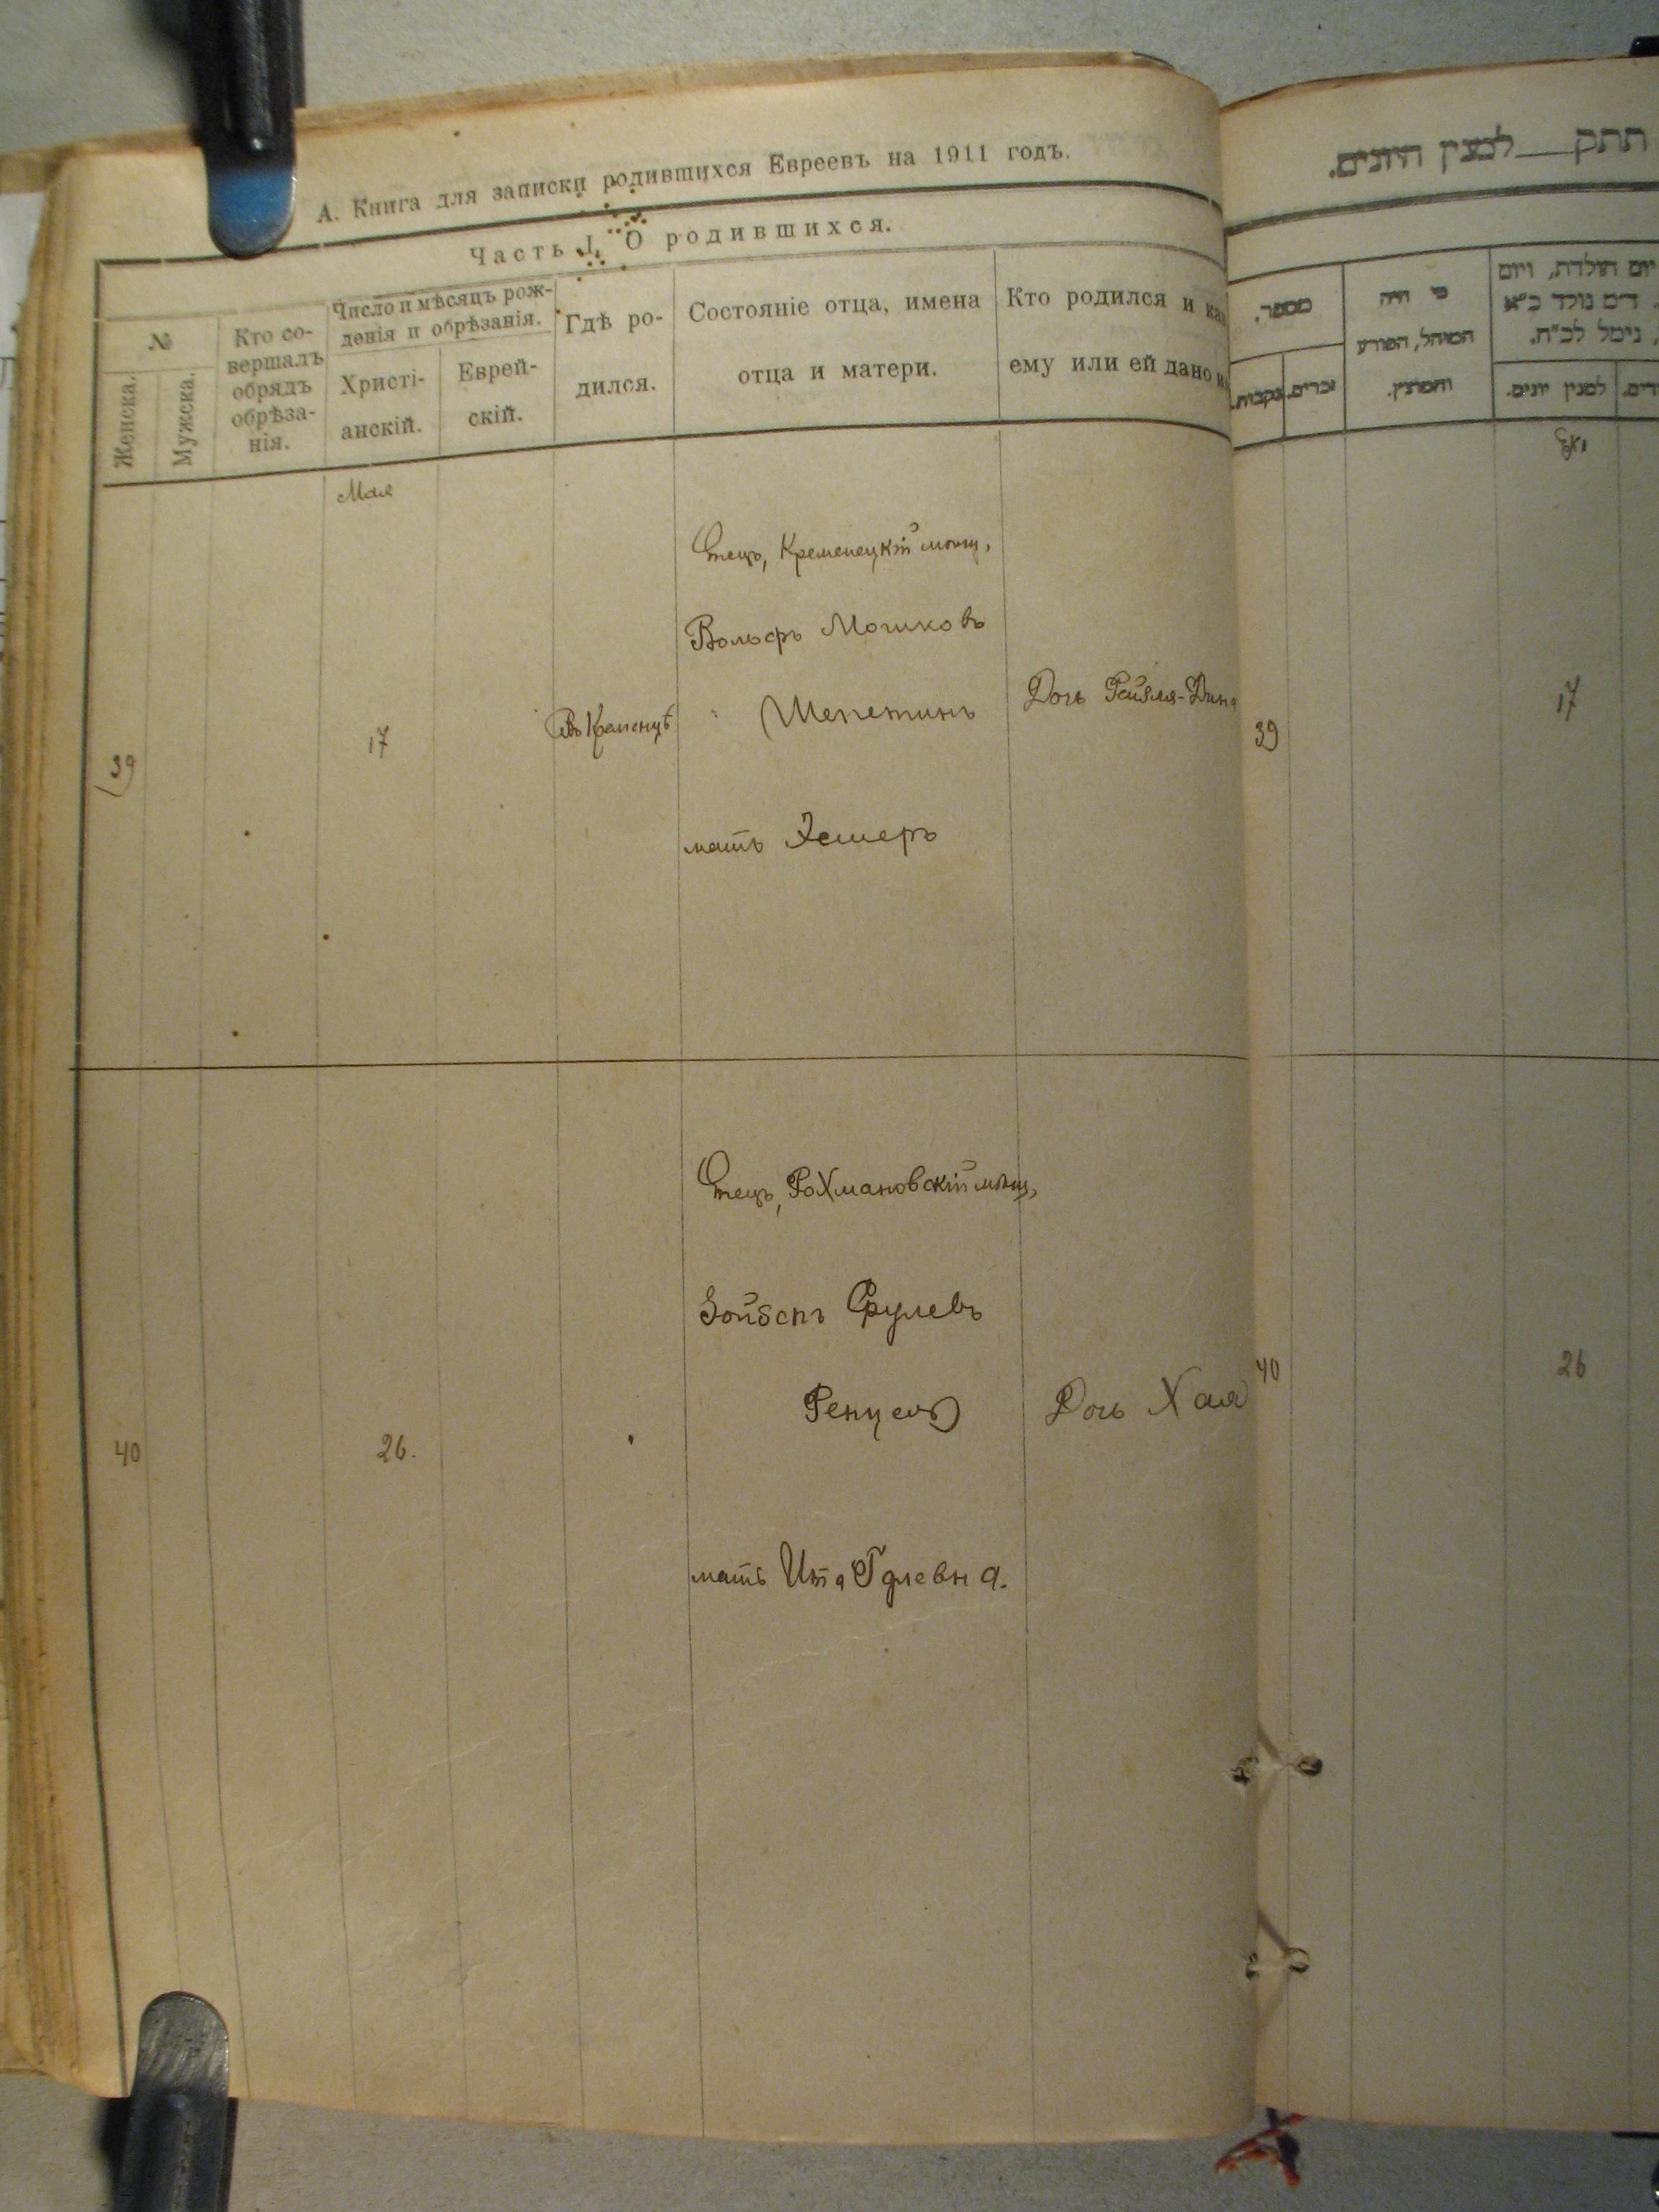 А. Книга для записки родившихся Евреевъ на 1911 годъ.
Часть I. О родившихся.
№
Женска.
Мужска.
Кто со-
вершалъ
обрядъ
обрѣза-
нія.
Число и мѣсяцъ рож-
денія и обрѣзанія.
Христі-
анскій.
Еврей-
скій.
Гдѣ ро-
дился.
Состояніе отца, имена
отца и матери.
Кто родился и ка
ему или ей дано и
Мая
39
17
Въ Кременцѣ
Отецъ, Кременецкій мѣщ,
Вольфъ Мошковъ
Шепетинъ
мать Эстеръ
Дочь Рейзля-Дина
40
26.
Отецъ, Рохмановскій мѣщ,
Срулевъ
мать Ита
Дочь Хая
תתק לмנין היונים.
מספר.
נקבות.
זכרים.
מי היה
המוהל, הפורע
והמוצץ.
יום הולדת, ויום
ד״מ נולד כ״א
נימל לכ״ח.
למנין יונים.
39
17
40
26